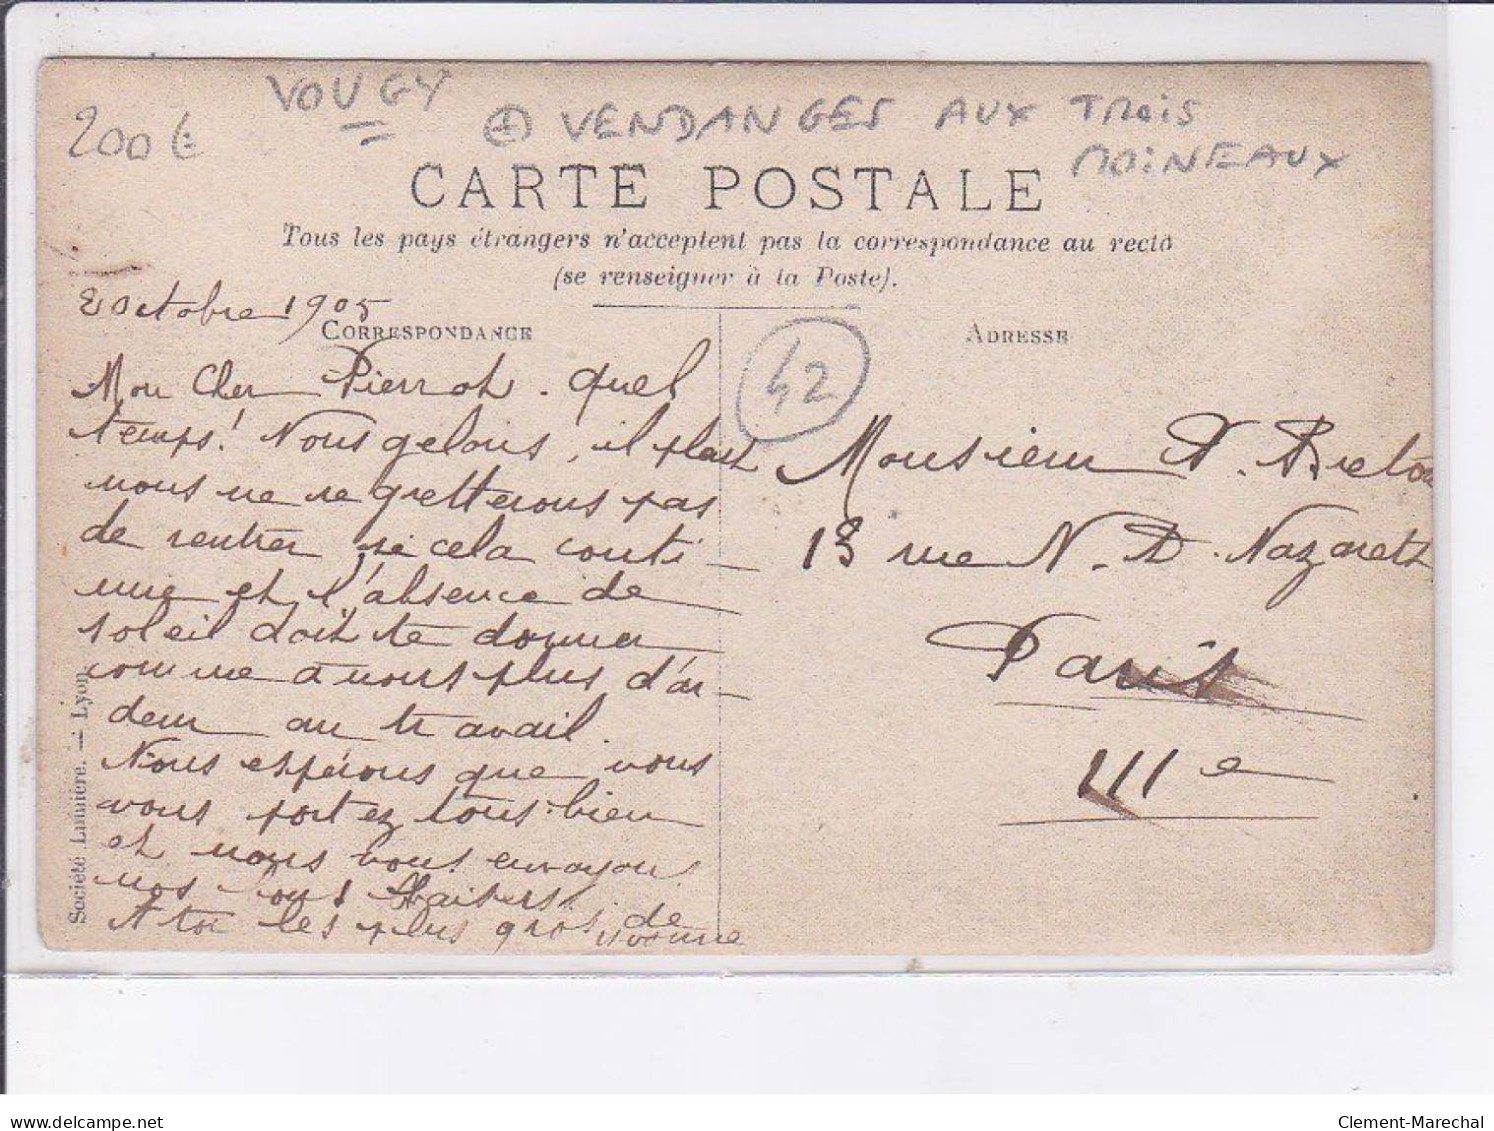 VOUGY
200€
+ VENDANGES AUX TROIS
MOINEAUX
CARTE POSTALE
Tous les pays étrangers n'acceptent pas la correspondance au recto
(se renseigner à la Poste).
2 Octobre 1905
CORRESPONDANCE
Mon Cher Pierrot. quel
temps! Nous gelons, il pleut
nous ne regretterons pas
de rentrer si cela conti-
nue et l'absence de
soleil doit te donner
comme à nous plus d'ar-
deur au travail.
Nous espérons que vous
vous portez tous bien
et nous vous envoyons
nos bons baisers.
A toi les plus gros de
Yvonne
Société Lumière. — Lyon
42
ADRESSE
Monsieur P. Breton
13 rue N. D. Nazareth
Paris
IIIe
delcampe.net
Clement-Marechal